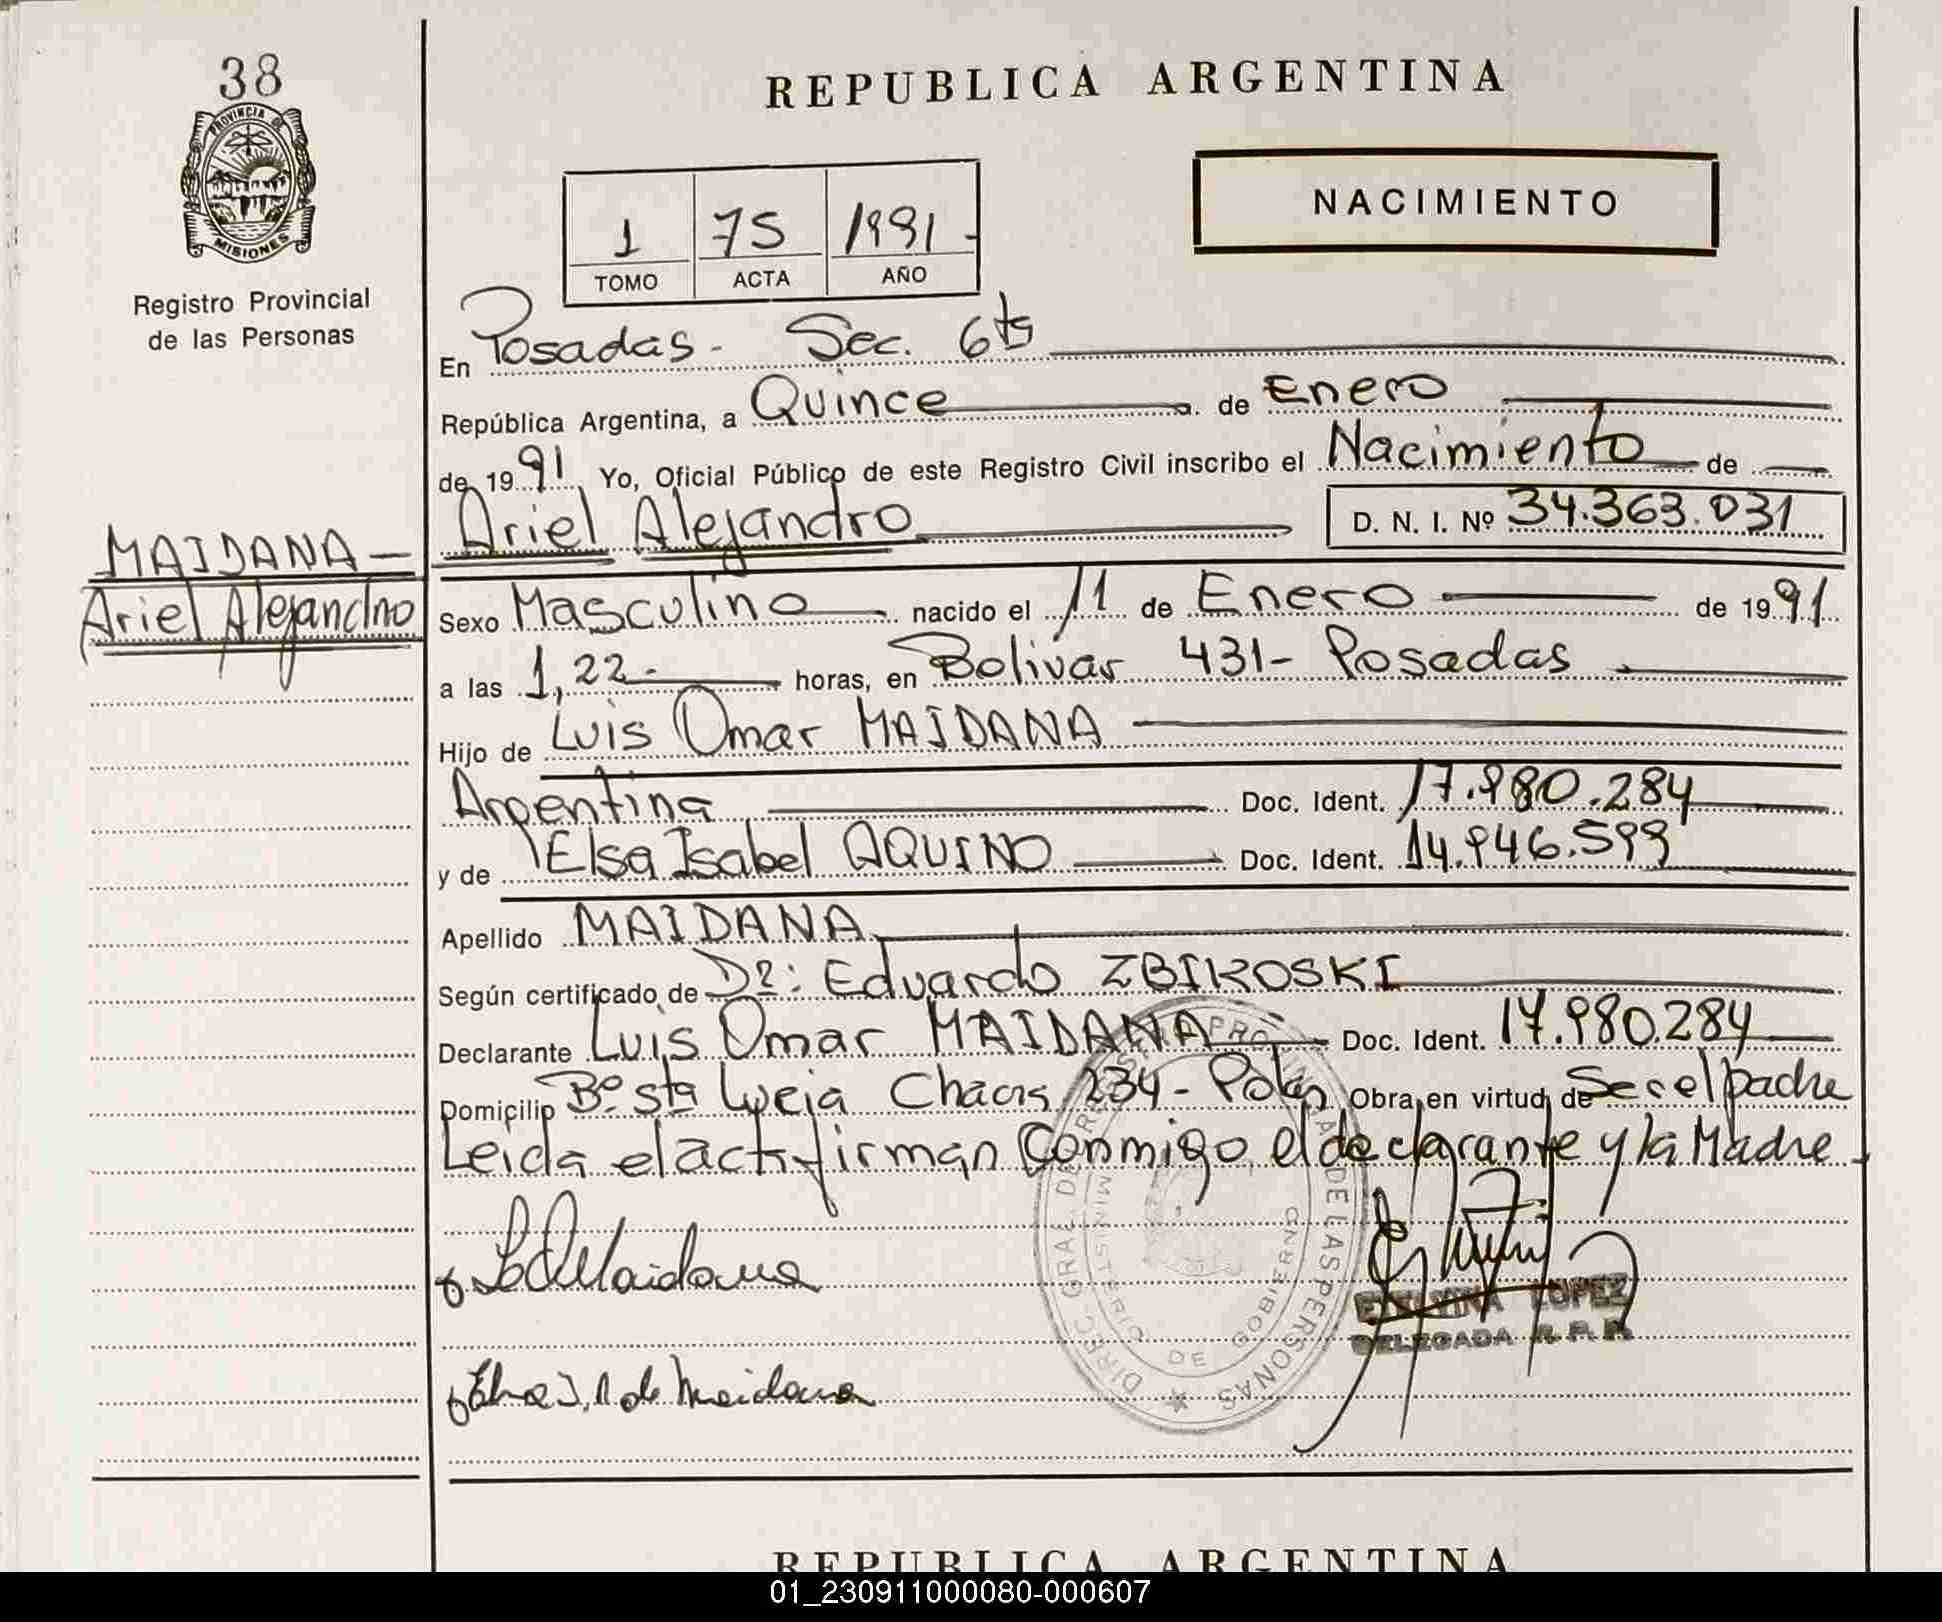 38
PROVINCIA DE
MISIONES
Registro Provincial
de las Personas
MAIDANA —
Ariel Alejandro
REPUBLICA ARGENTINA
NACIMIENTO
1 75 1991 -
TOMO ACTA AÑO
En Posadas - Sec. 6ta
República Argentina, a Quince de Enero
de 1991 Yo, Oficial Público de este Registro Civil inscribo el Nacimiento de
Ariel Alejandro D. N. I. Nº 34.363.031
Sexo Masculino nacido el 11 de Enero de 1991
a las 1,22 - horas, en Bolivar 431 - Posadas
Hijo de Luis Omar MAIDANA
Argentina Doc. Ident. 17.980.284
y de Elsa Isabel AQUINO Doc. Ident. 14.946.599
Apellido MAIDANA
Según certificado de Dr: Eduardo ZBIKOSKI
Declarante Luis Omar MAIDANA Doc. Ident. 17.980.284
Domicilio Bº sta Lucia Chacra 234 - Pdas Obra en virtud de Ser el padre
Leida el acta firman Conmigo el declarante y la Madre -
DIREC. GRAL. DE REGISTRO PROVINCIAL DE LAS PERSONAS
MINISTERIO DE GOBIERNO
Maidana
ETELVINA LOPEZ
DELEGADA R. P. P.
Elsa I. A de Maidana
REPUBLICA ARGENTINA
01_230911000080-000607